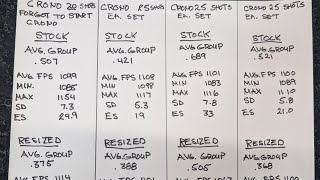 CRONO 20 SHOTS
FORGOT TO START
CRONO
STOCK
AVG. GROUP
.507
AVG. FPS 1099
MIN. 1085
MAX 1154
SD 7.3
ES 29.9
RESIZED
AVG. GROUP
.375
AVG. FPS 1114
CRONO 25 SHOTS
EA. SET
STOCK
AVG. GROUP
.421
AVG. FPS 1108
MIN 1098
MAX 1117
SD 5.3
ES 19
RESIZED
AVG. GROUP
.388
CRONO 25 SHOTS
EA. SET
STOCK
AVG. GROUP
.689
AVG. FPS 1101
MIN 1083
MAX 1116
SD 7.8
ES 33
RESIZED
AVG. GROUP
.505
CRONO 25 SHOTS
EA. SET
STOCK
AVG. GROUP
.521
AVG. FPS 1100
MIN 1089
MAX 1110
SD 5.8
ES 21.0
RESIZED
AVG. GROUP
.368